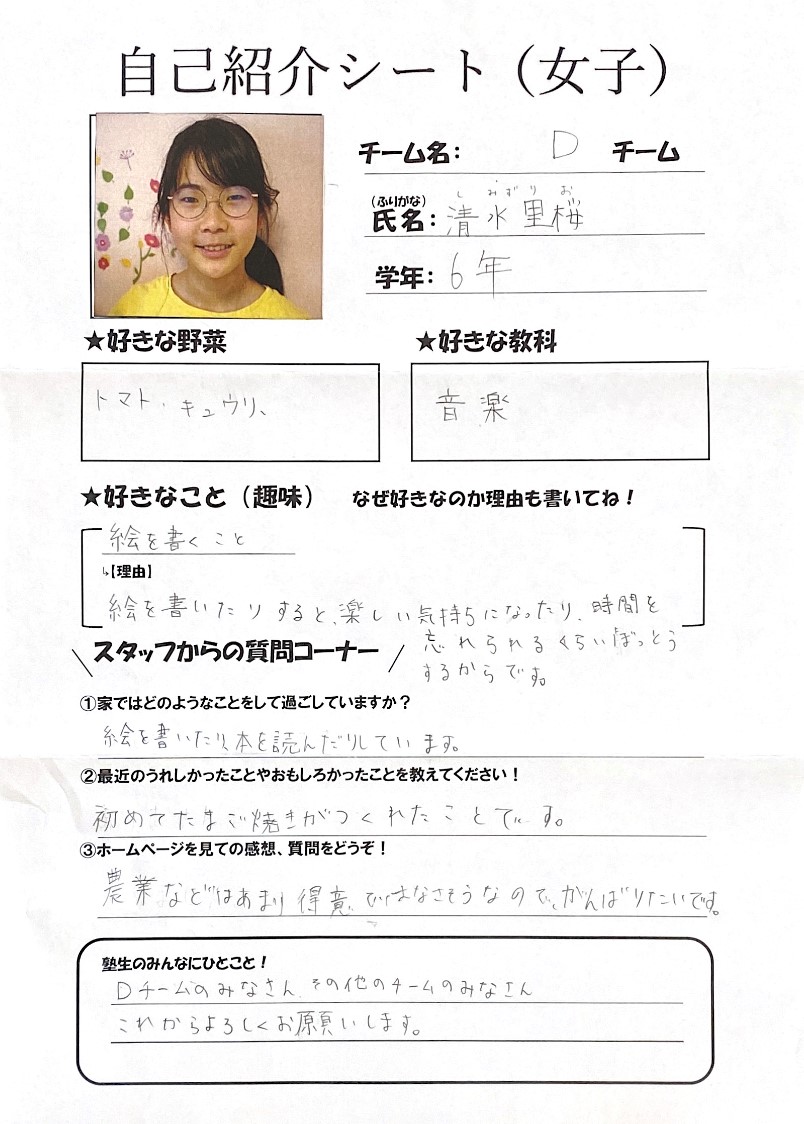 自己紹介シート（女子）
チーム名： D チーム
しみずりお
（ふりがな）
氏名：清水里桜
学年：6年
★好きな野菜
★好きな教科
トマト、キュウリ、
音楽
★好きなこと（趣味） なぜ好きなのか理由も書いてね！
絵を書くこと
↳【理由】
絵を書いたりすると、楽しい気持ちになったり、時間を
忘れられるくらいぼっとう
するからです。
スタッフからの質問コーナー
①家ではどのようなことをして過ごしていますか？
絵を書いたり、本を読んだりしています。
②最近のうれしかったことやおもしろかったことを教えてください！
初めてたまご焼きがつくれたことです。
③ホームページを見ての感想、質問をどうぞ！
農業などはあまり得意ではなさそうなので、がんばりたいです。
塾生のみんなにひとこと！
Dチームのみなさん、その他のチームのみなさん
これからよろしくお願いします。